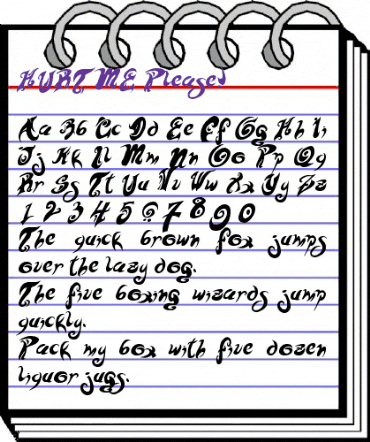 HURT ME Pleased
Aa Bb Cc Dd Ee Ff Gg Hh Ii
Jj Kk Ll Mm Nn Oo Pp Qq
Rr Ss Tt Uu Vv Ww Xx Yy Zz
1 2 3 4 5 6 7 8 9 0
The quick brown fox jumps
over the lazy dog.
The five boxing wizards jump
quickly.
Pack my box with five dozen
liquor jugs.